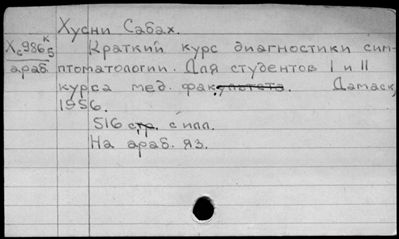 Хусни Сабах.
Хс986к5
араб.
Краткий курс диагностики сим-
птоматологии. Для студентов I и II
курса мед. факультета. Дамаск,
1956.
516 стр. с илл.
На араб. яз.